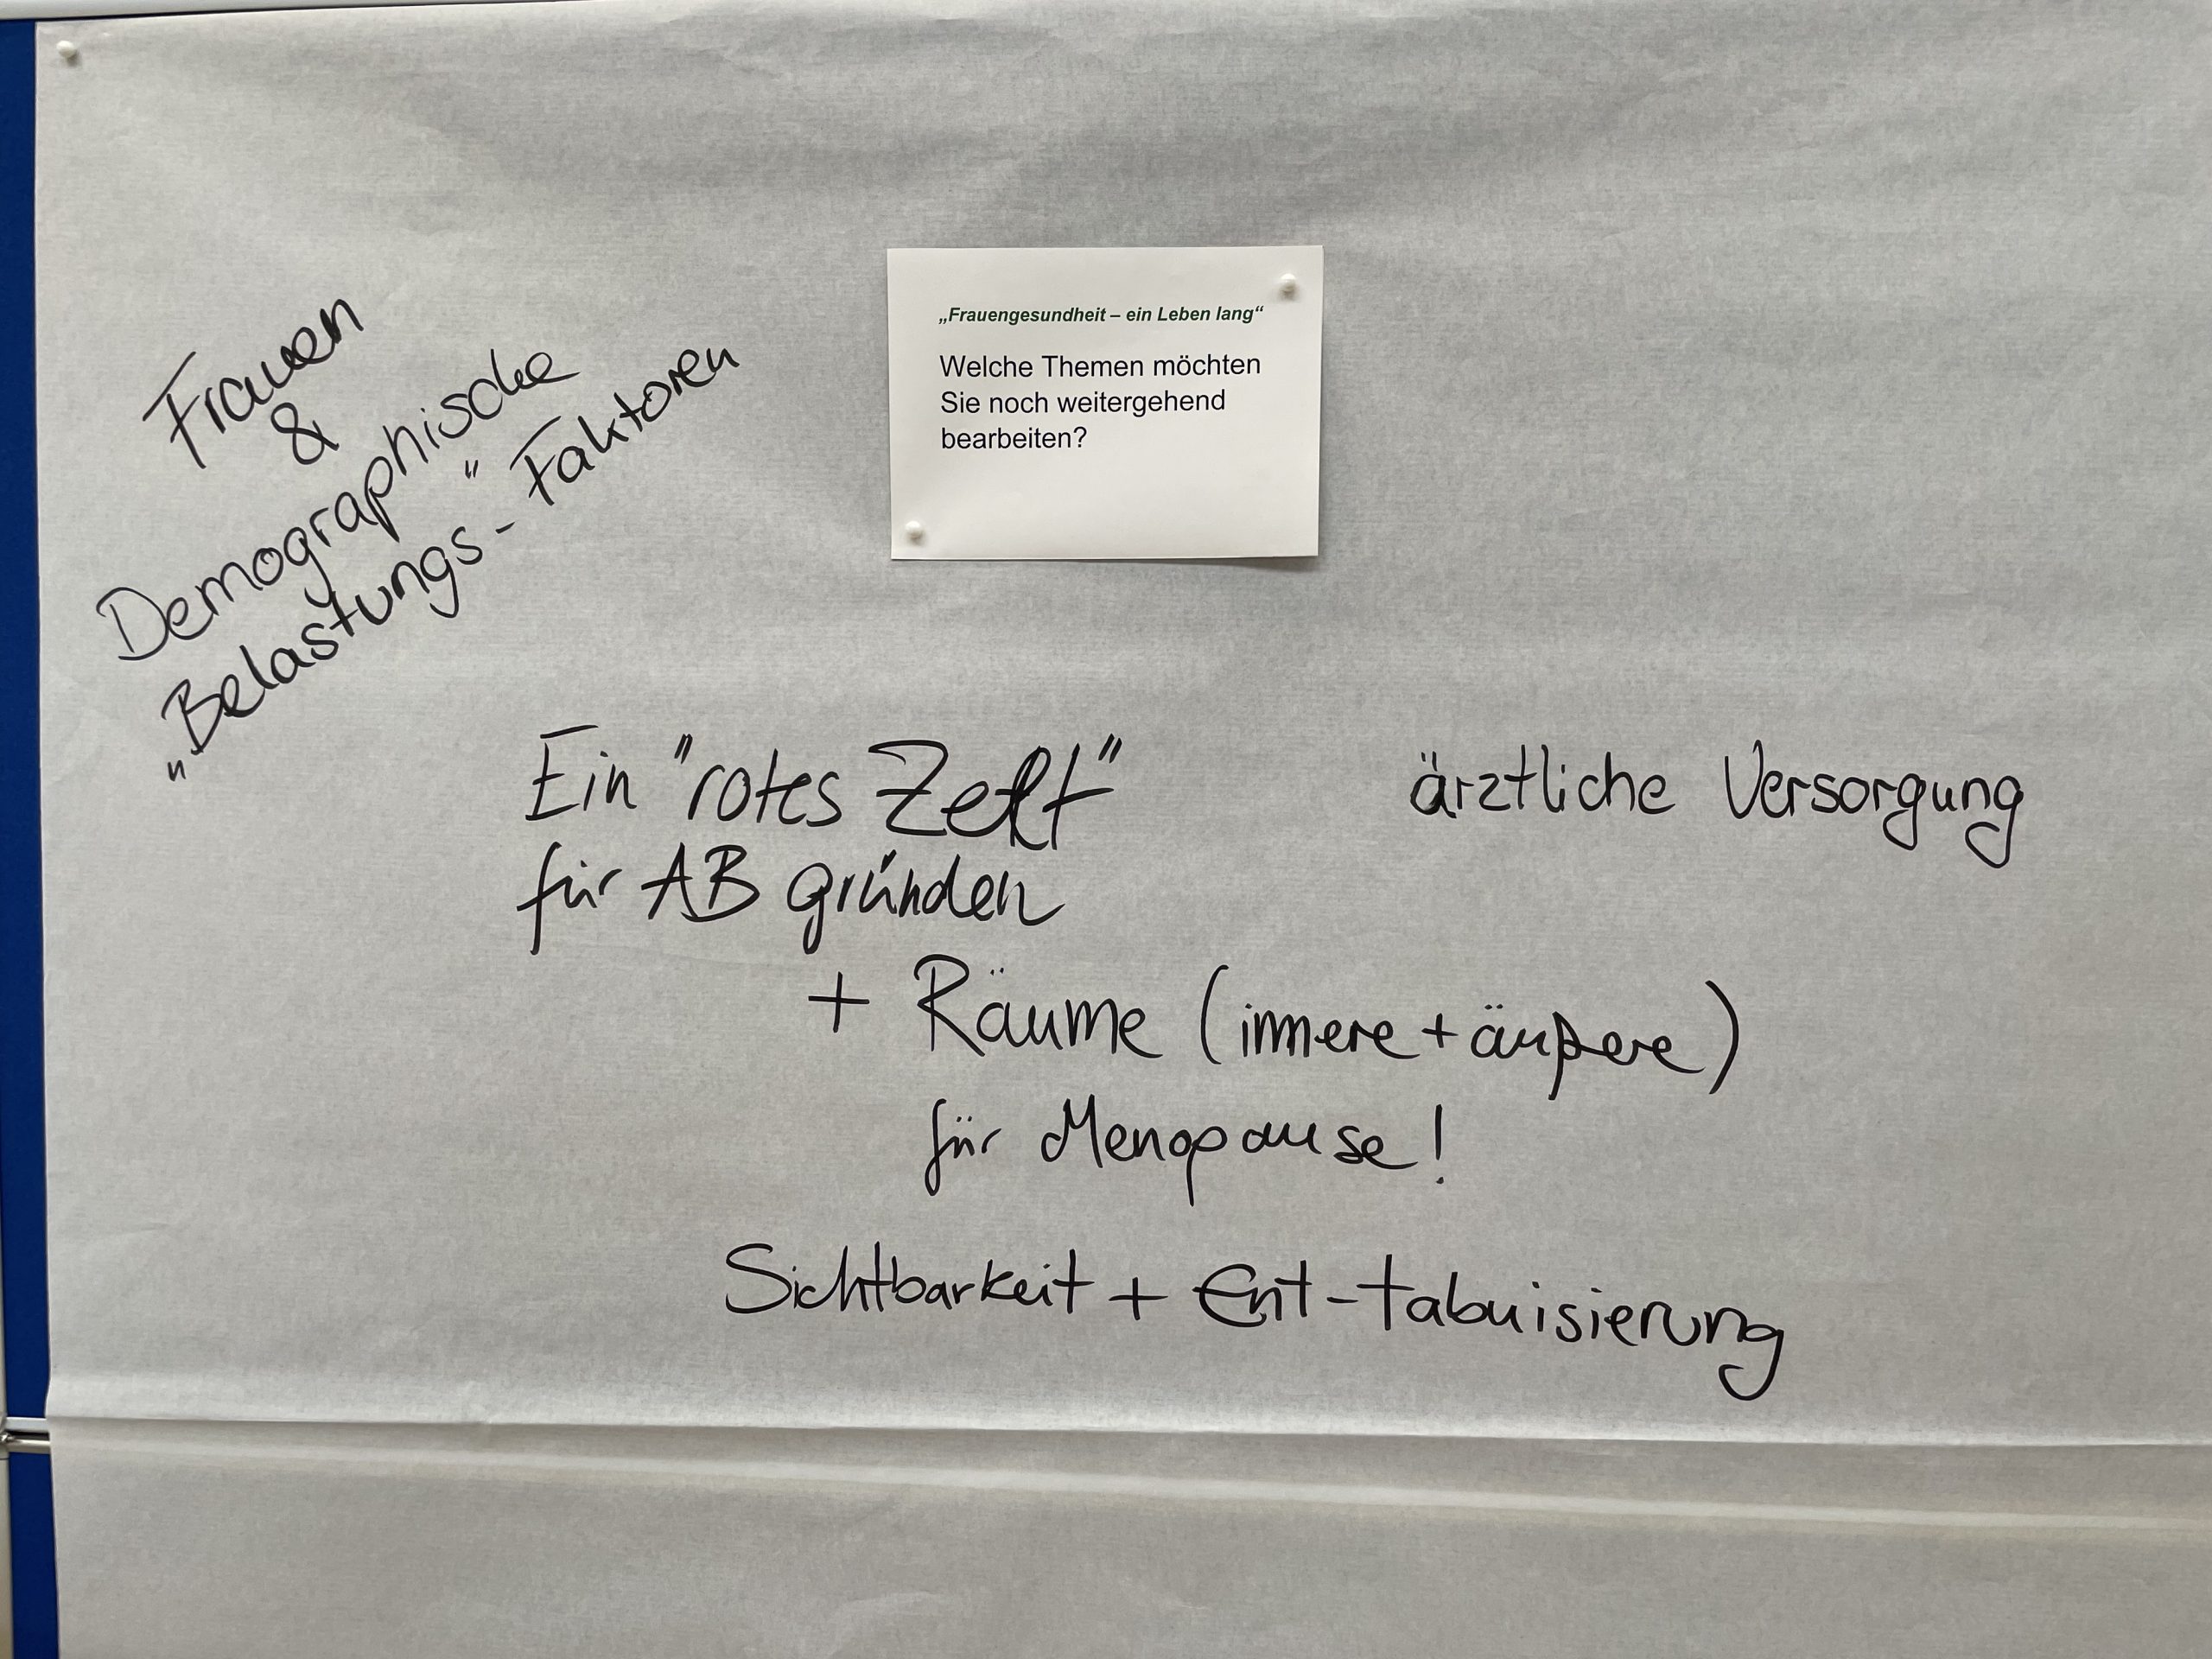 „Frauengesundheit – ein Leben lang“
Welche Themen möchten
Sie noch weitergehend
bearbeiten?
Frauen
&
Demographische
„Belastungs“-Faktoren
Ein "rotes Zelt"
für AB gründen
+ Räume (innere + äußere)
für Menopause!
ärztliche Versorgung
Sichtbarkeit + Ent-tabuisierung